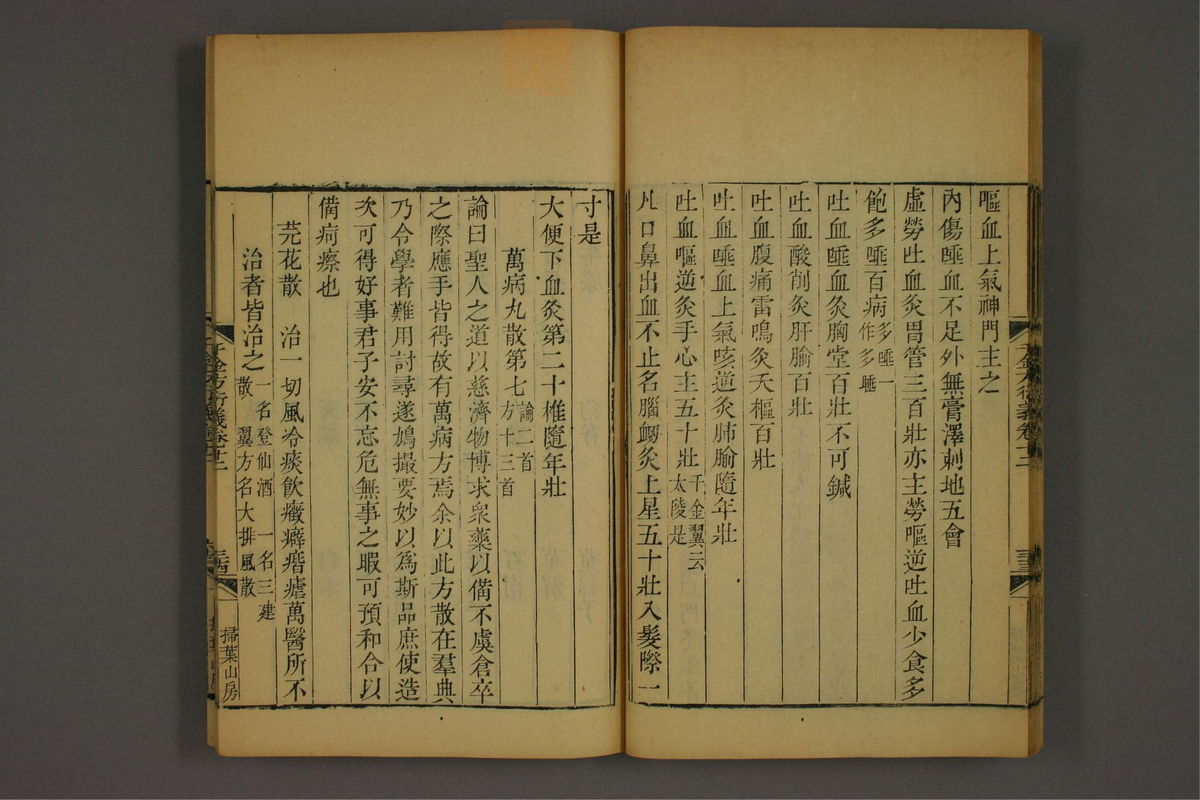 嘔血上氣神門主之
內傷唾血不足外無膏澤刺地五會
虛勞吐血灸胃管三百壯亦主勞嘔逆吐血少食多
飽多唾百病多唾一作多睡
吐血唾血灸胸堂百壯不可鍼
吐血酸削灸肝腧百壯
吐血腹痛雷鳴灸天樞百壯
吐血唾血上氣咳逆灸肺腧隨年壯
吐血嘔逆灸手心主五十壯千金翼云太陵是
凡口鼻出血不止名腦衄灸上星五十壯入髮際一
寸是
大便下血灸第二十椎隨年壯
萬病丸散第七論二首方十三首
論曰聖人之道以慈濟物博求眾藥以備不虞倉卒
之際應手皆得故有萬病方焉余以此方散在羣典
乃令學者難用討尋遂鳩撮要妙以為斯品庶使造
次可得好事君子安不忘危無事之暇可預和合以
備疴瘵也
芫花散 治一切風冷痰飲癥癖痎瘧萬醫所不
治者皆治之一名登仙酒 一名三建散 翼方名大排風散
千金方衍義卷十二
三十四
掃葉山房